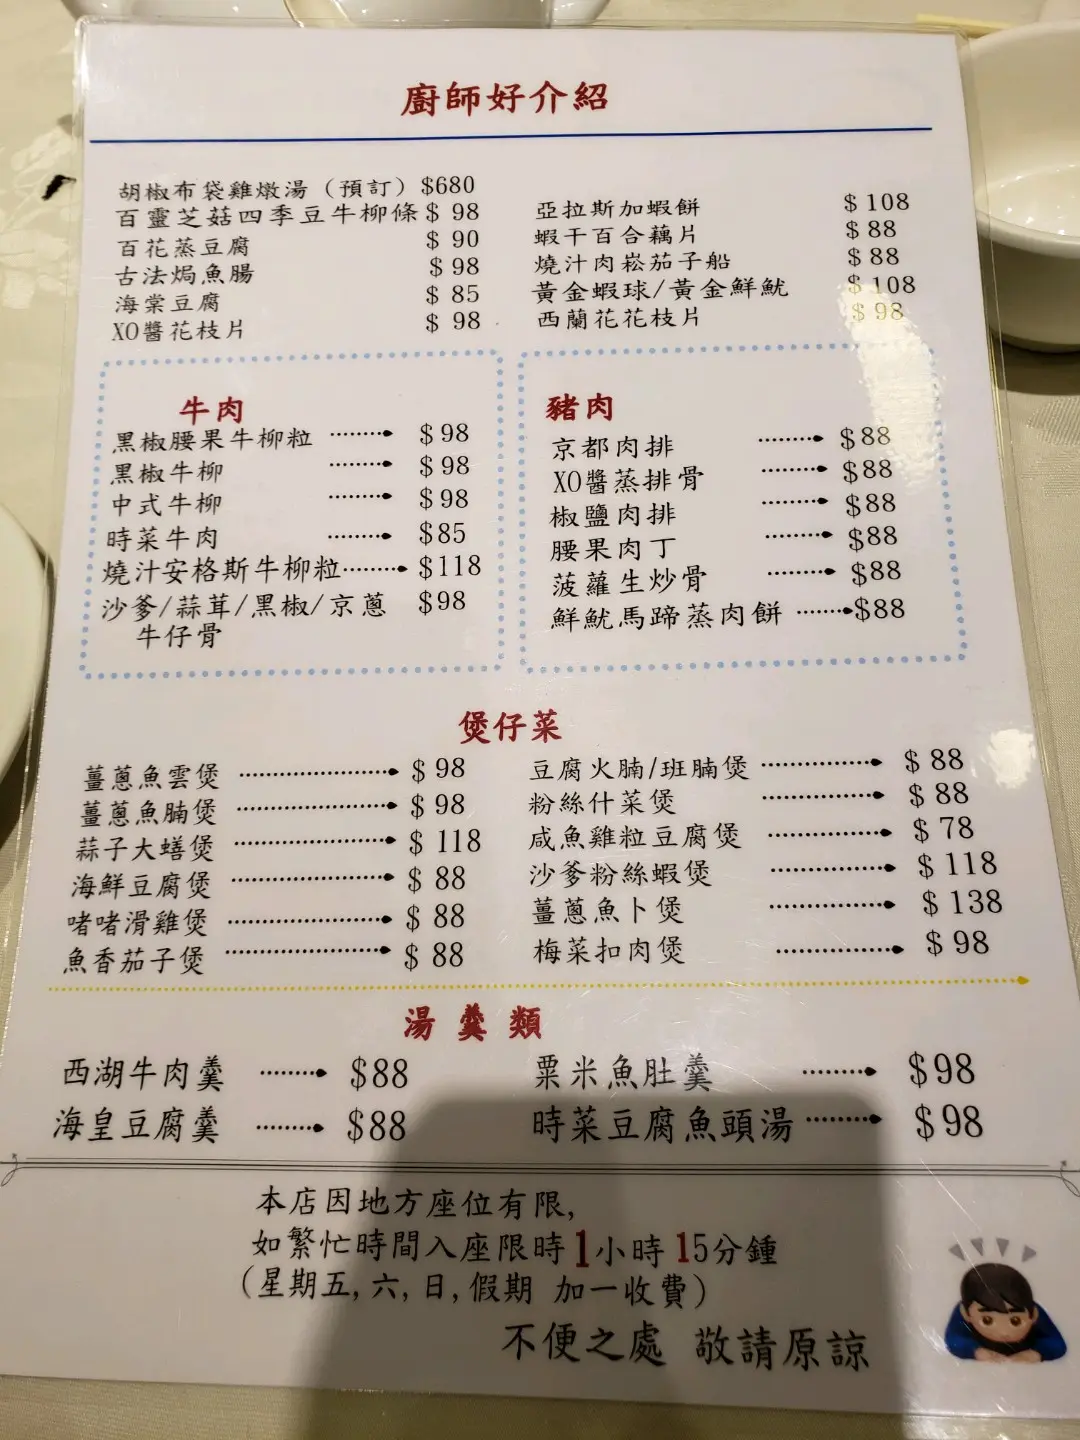 廚師好介紹
胡椒布袋雞燉湯（預訂）$680
百靈芝菇四季豆牛柳條 $ 98
百花蒸豆腐 $ 90
古法焗魚腸 $ 98
海棠豆腐 $ 85
XO醬花枝片 $ 98
亞拉斯加蝦餅 $ 108
蝦干百合藕片 $ 88
燒汁肉崧茄子船 $ 88
黃金蝦球/黃金鮮魷 $ 108
西蘭花花枝片 $ 98
牛肉
黑椒腰果牛柳粒 $98
黑椒牛柳 $98
中式牛柳 $98
時菜牛肉 $85
燒汁安格斯牛柳粒 $118
沙爹/蒜茸/黑椒/京蔥 $98
牛仔骨
豬肉
京都肉排 $88
XO醬蒸排骨 $88
椒鹽肉排 $88
腰果肉丁 $88
菠蘿生炒骨 $88
鮮魷馬蹄蒸肉餅 $88
煲仔菜
薑蔥魚雲煲 $ 98
薑蔥魚腩煲 $ 98
蒜子大蟮煲 $ 118
海鮮豆腐煲 $ 88
啫啫滑雞煲 $ 88
魚香茄子煲 $ 88
豆腐火腩/班腩煲 $ 88
粉絲什菜煲 $ 88
咸魚雞粒豆腐煲 $ 78
沙爹粉絲蝦煲 $ 118
薑蔥魚卜煲 $ 138
梅菜扣肉煲 $ 98
湯羹類
西湖牛肉羹 $88
海皇豆腐羹 $88
粟米魚肚羹 $98
時菜豆腐魚頭湯 $98
本店因地方座位有限,
如繁忙時間入座限時1小時15分鍾
(星期五,六,日,假期 加一收費)
不便之處 敬請原諒